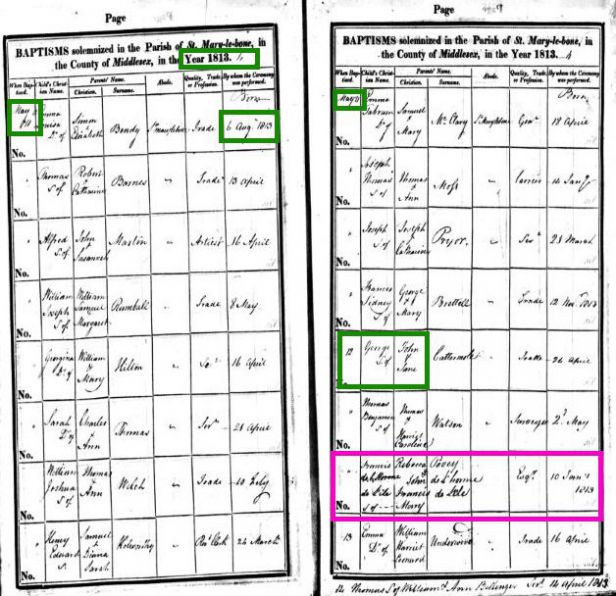 Page
BAPTISMS solemnized in the Parish of St. Mary-le-bone, in
the County of Middlesex, in the Year 1813. 4
When Baptized.
Child's Christian Name.
Parents' Name.
Christian.
Surname.
Abode.
Quality, Trade or Profession.
By whom the Ceremony was performed.
Born
May
Emma
Louisa
Dr of
Simon
Elizabeth
Bendy
Trade
6 Augt 1813
No.
" Thomas
S of
Robert
Catharine
Barnes
" Trade
13 April
No.
" Alfred
S of
John
Susannah
Martin
" Artist
16 April
No.
" William
Joseph
S of
William
Samuel
Margaret
Rumball
" Trade
8 May
No.
" Georgina
Dr of
William
Mary
Hilton
" 16 April
No.
" Sarah
Dr of
Charles
Ann
Thomas
" Servt
28 April
No.
William
Joshua
S of
Thomas
Ann
Welch
" Trade
10 July
No.
" Henry
Edward
S
Samuel
Diana
Sarah
" Clerk
24 March
No.
Page
BAPTISMS solemnized in the Parish of St. Mary-le-bone, in
the County of Middlesex, in the Year 1813. 4
When Baptized.
Child's Christian Name.
Parents' Name.
Christian.
Surname.
Abode.
Quality, Trade or Profession.
By whom the Ceremony was performed.
Born
May 11
Emma
Dr of
Samuel
Mary
Mc Clary
Gent
18 April
No.
" Joseph
Thomas
S of
Thomas
Ann
Moss
" Carrier
14 Jany
No.
" Joseph
S of
Joseph
Catharine
Pryor
" Servt
23 March
No.
" Frances
Sidney
S of
George
Mary
Brettell
" Trade
12 Novr
No.
12 George
S of
John
Jane
Cattermole
" Trade
24 April
No.
" Thomas
Benjamin
S of
Thomas
Harriet
Caroline
Watson
" Surveyor
2d May
No.
" Francis
de L'Homme
de Lisle
S of
Rebecca
John
Francis
Mary
Povey
de L'homme
de Lisle
Esqr
10 Jany
1813
No.
13 Emma
Dr of
William
Harriet
Underwood
" Trade
16 April
No.
Thomas S of William & Ann Servt 14 April 1813